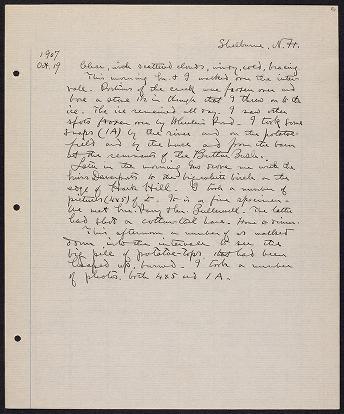 Shelburne, N.H.
1907
Oct. 19
Clear, with scattered clouds, windy, cold, bracing.
This morning I walked over the inter-
vale. Portions of the creek were frozen over and
bore a stone in that I threw on to the
ice. The ice remained all day. I saw other
spots frozen over by Wheeler's Pond. I took some
snaps (1A) by the river and on the potato-
field and by the house and from the barn
of the remnants of the Button Bush.
Later in the morning we drove with the
Miss Davenports to the big white birch on the
edge of Hark Hill. I took a number of
pictures (4x5) of it. It is a fine specimen.
We met Mrs. and Mrs. The latter
had shot a cotton-tail Hare, from a
This afternoon a number of us walked
down into the intervale to see the
big pile of potato-tops that had been
heaped up, burned. I took a number
of photos, both 4x5 and 1A.